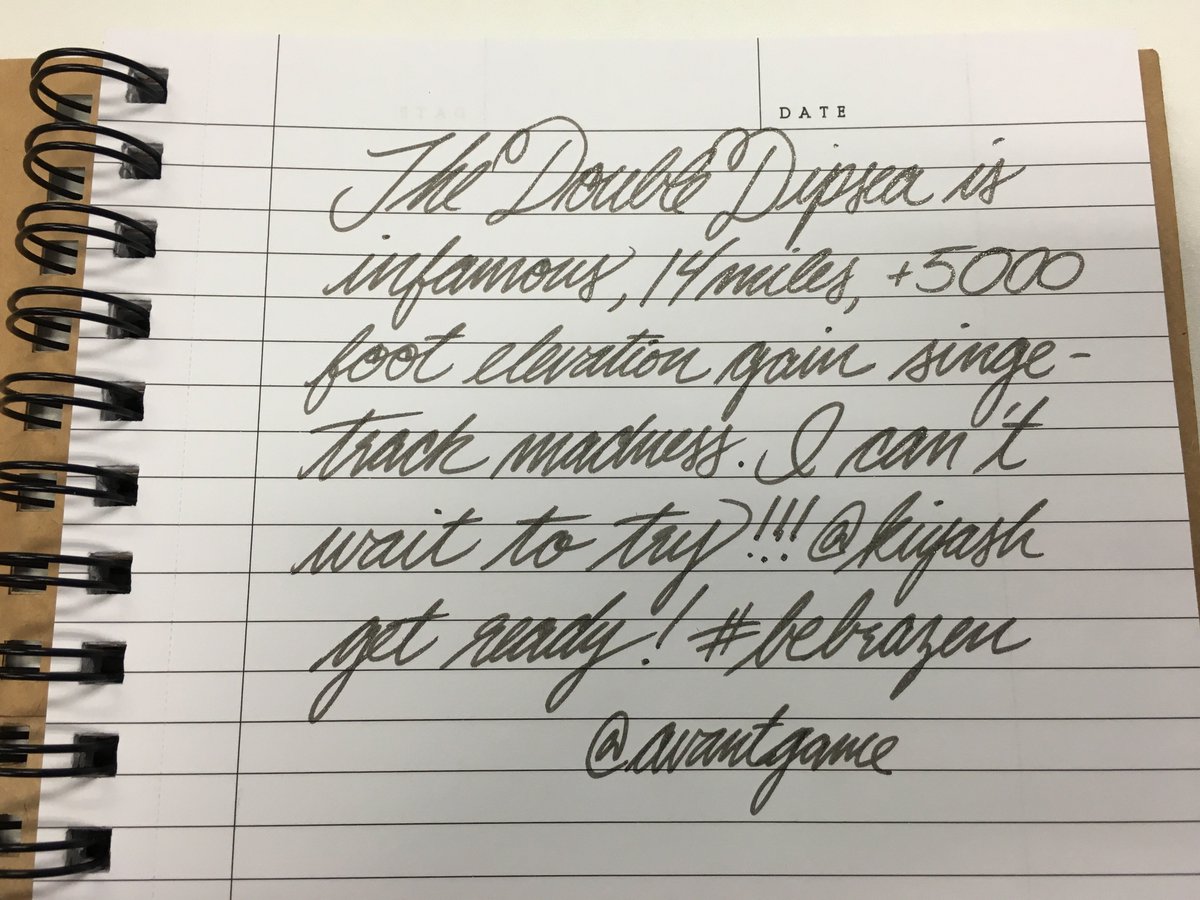 DATE
The Double Dipsea is
infamous, 14 miles, +5000
foot elevation gain singe-
track madness. I can't
wait to try!!! @kiyash
get ready! #bebrazen
@avantgame